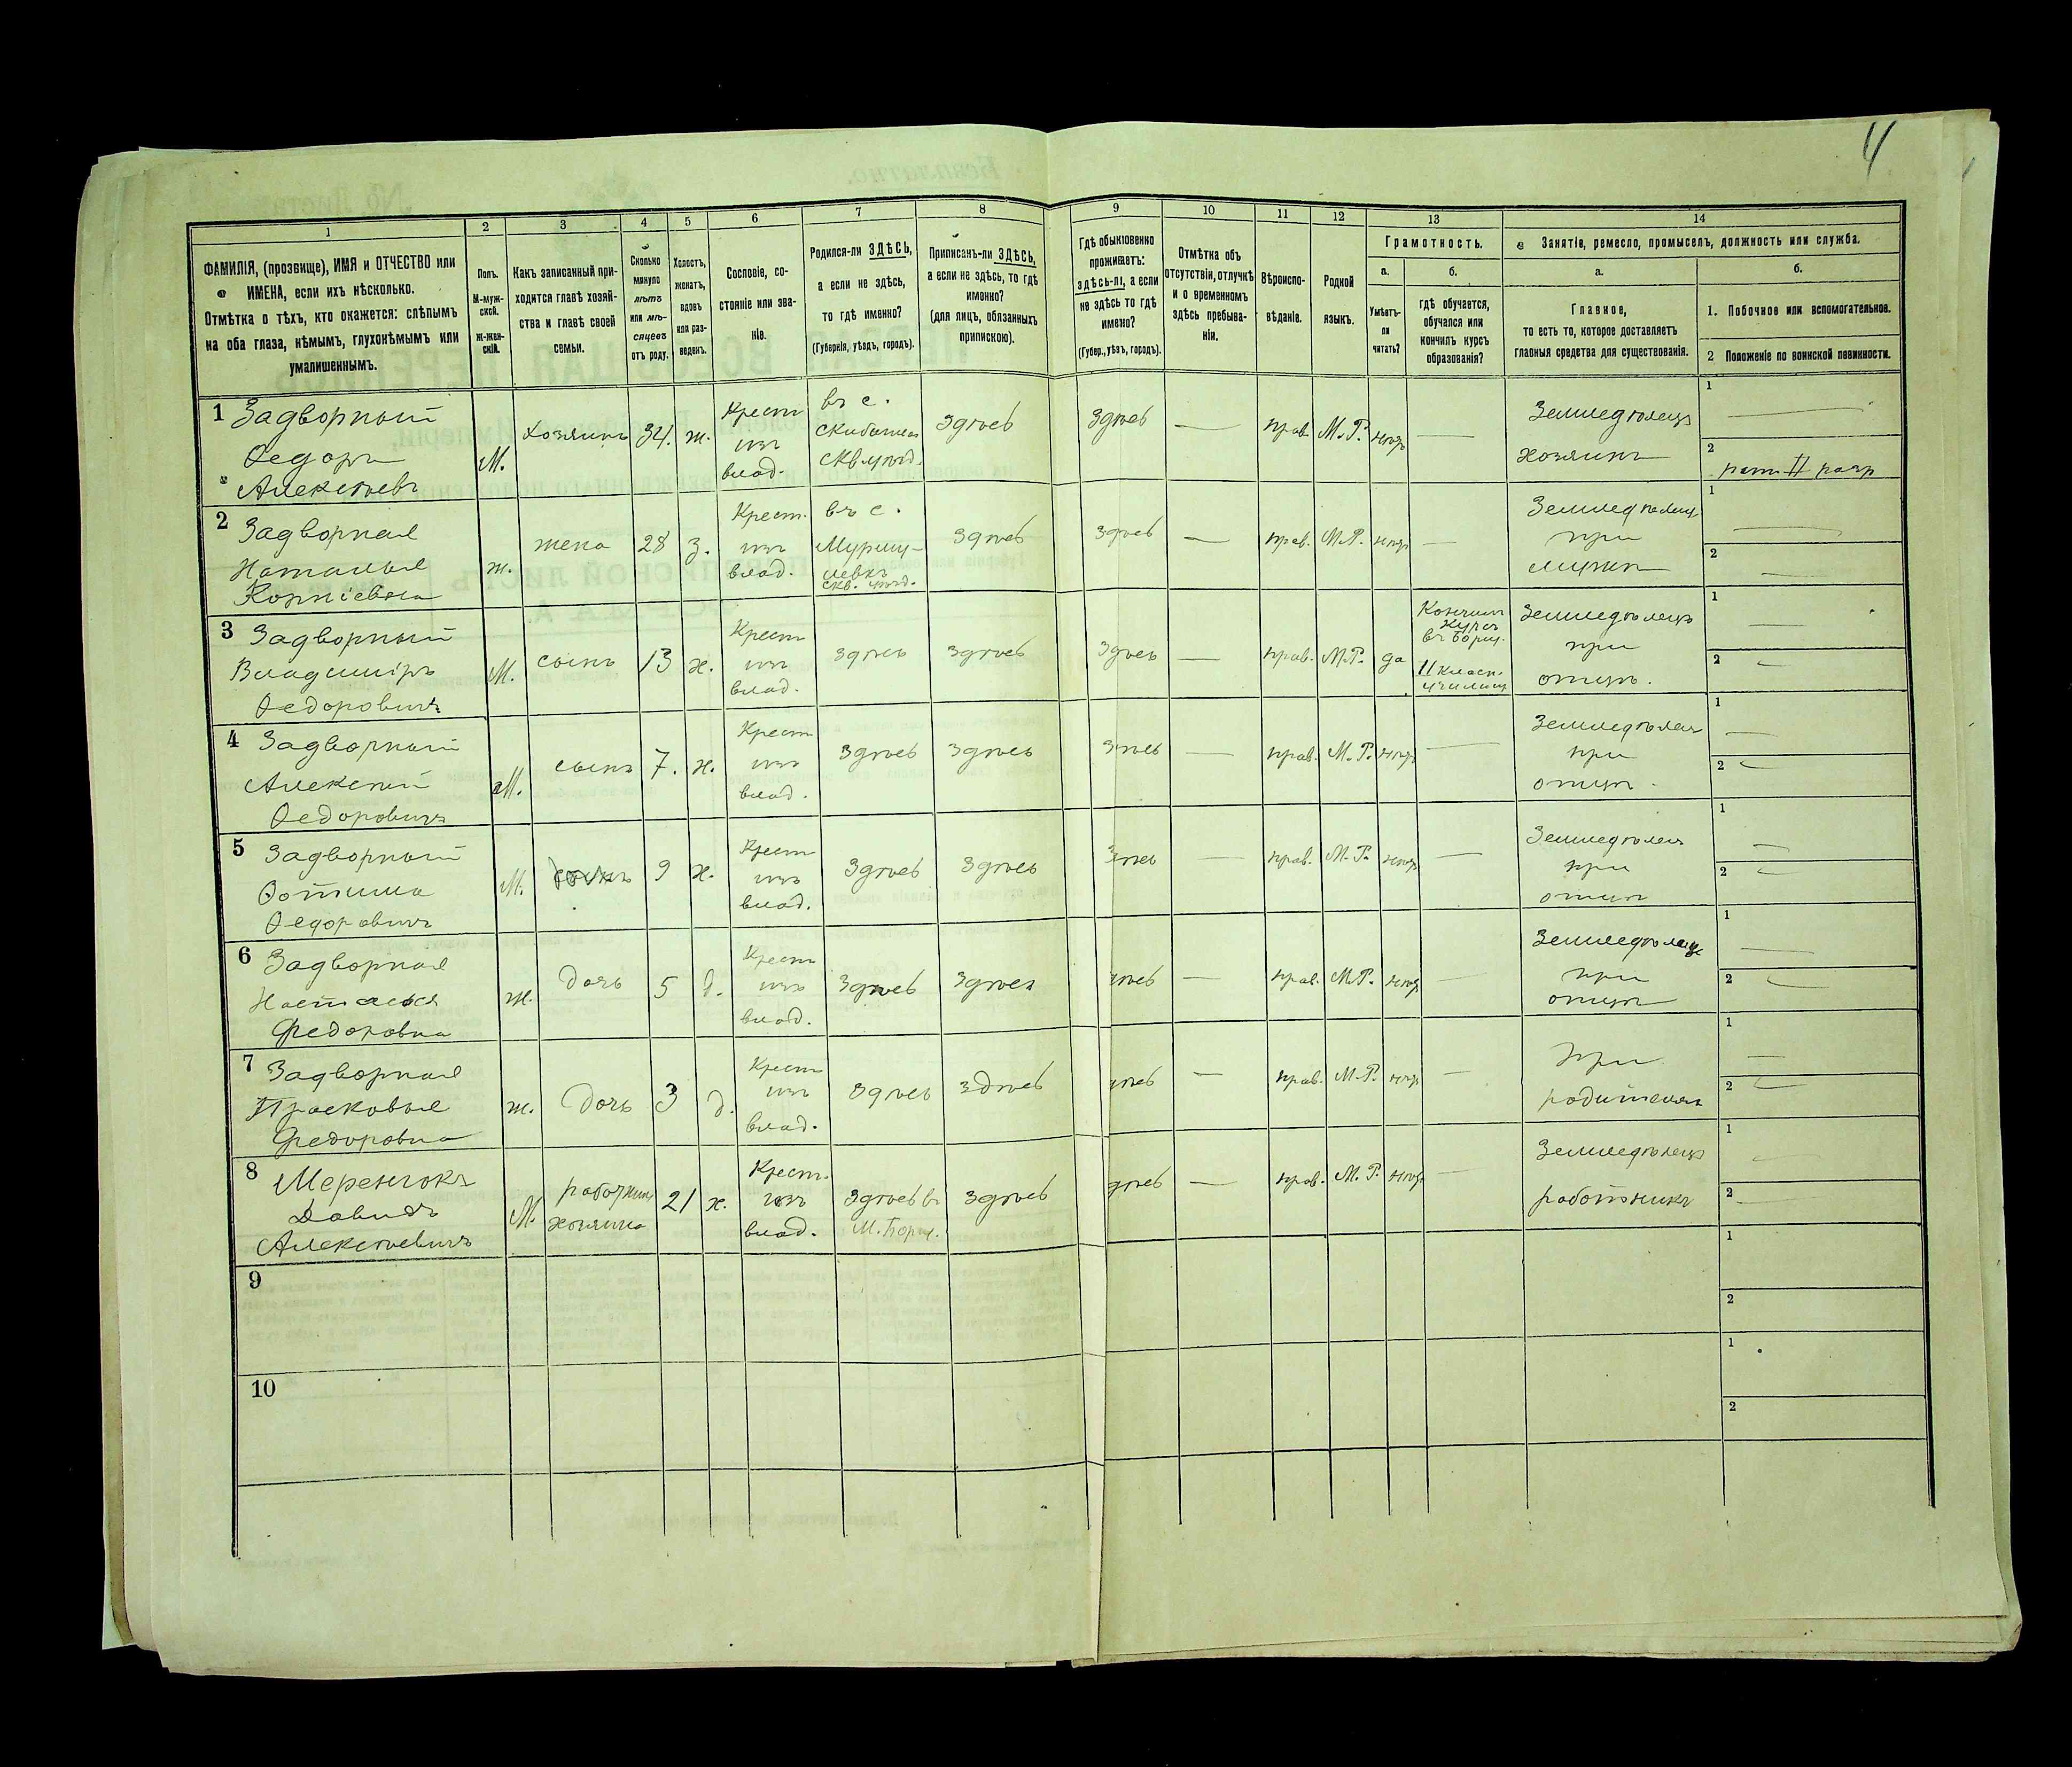 4
1
2
3
4
5
6
7
8
9
10
11
12
13
14
ФАМИЛІЯ, (прозвище), ИМЯ и ОТЧЕСТВО или
ИМЕНА, если ихъ нѣсколько.
Отмѣтка о тѣхъ, кто окажется: слѣпымъ
на оба глаза, нѣмымъ, глухонѣмымъ или
умалишеннымъ.
Полъ.
М-муж-
ской.
Ж-жен-
скій.
Какъ записанный при-
ходится главѣ хозяй-
ства и главѣ своей
семьи.
Сколько
минуло
лѣтъ
или мѣ-
сяцевъ
отъ роду.
Холостъ,
женатъ,
вдовъ
или раз-
веденъ.
Сословіе, со-
стояніе или зва-
ніе.
Родился-ли ЗДѢСЬ,
а если не здѣсь,
то гдѣ именно?
(Губернія, уѣздъ, городъ).
Приписанъ-ли ЗДѢСЬ,
а если не здѣсь, то гдѣ
именно?
(для лицъ, обязанныхъ
припискою).
Гдѣ обыкновенно
проживаетъ:
здѣсь-ли, а если
не здѣсь то гдѣ
имено?
(Губер., уѣзъ, городъ).
Отмѣтка объ
отсутствіи, отлучкѣ
и о временномъ
здѣсь пребыва-
ніи.
Вѣроиспо-
вѣданіе.
Родной
языкъ.
Грамотность.
а.
б.
Умѣетъ-
ли
читать?
гдѣ обучается,
обучался или
кончилъ курсъ
образованія?
Занятіе, ремесло, промыселъ, должность или служба.
а.
б.
Главное,
то есть то, которое доставляетъ
главныя средства для существованія.
1. Побочное или вспомогательное.
2 Положеніе по воинской повинности.
1 Задворный
Федоръ
Алексѣевъ
М. хозяинъ 34. ж.
Крест
изъ
влад.
въ с.
здѣсь здѣсь — прав. М.Р. нѣтъ —
Земледѣлецъ
хозяинъ
1 —
2 рат II разр
2 Задворная
Наталья
Корніевна
ж. жена 28 з.
Крест.
изъ
влад.
въ с.
скв. уѣзд.
здѣсь здѣсь — прав. М.Р. нѣтъ —
Земледѣлец
при
мужѣ
1 —
2 —
3 Задворный
Владиміръ
Федоровичъ
М. сынъ 13 х.
Крест
изъ
влад.
здѣсь здѣсь здѣсь — прав. М.Р. да
Кончилъ
курсъ
въ Борщ.
II класн.
училищ
Земледѣлецъ
при
отцѣ.
1 —
2 —
4 Задворный
Алексѣй
Федоровичъ
М. сынъ 7. х.
Крест
изъ
влад.
здѣсь здѣсь здѣсь — прав. М.Р. нѣтъ —
Земледѣлец
при
отцѣ.
1 —
2 —
5 Задворный
Фотима
Федоровичъ
М. 9 х.
Крест
изъ
влад.
здѣсь здѣсь здѣсь — прав. М.Р. нѣтъ —
Земледѣлец
при
отцѣ
1 —
2 —
6 Задворная
Настасья
Федоровна
ж. дочь 5 д.
Крест
изъ
влад.
здѣсь здѣсь здѣсь — прав. М.Р. нѣтъ —
Земледѣлец
при
отцѣ
1 —
2 —
7 Задворная
Прасковья
Федоровна
ж. дочь 3 д.
Крест
изъ
влад.
здѣсь здѣсь здѣсь — прав. М.Р. нѣтъ —
При
родителях
1 —
2 —
8 Меренчокъ
Давидъ
Алексѣевичъ
М. работник
хозяина
21 х.
Крест.
изъ
влад.
здѣсь въ
М. Борщ.
здѣсь здѣсь — прав. М.Р. нѣтъ —
Земледѣлецъ
работникъ
1 —
2 —
9
1
2
10
1
2